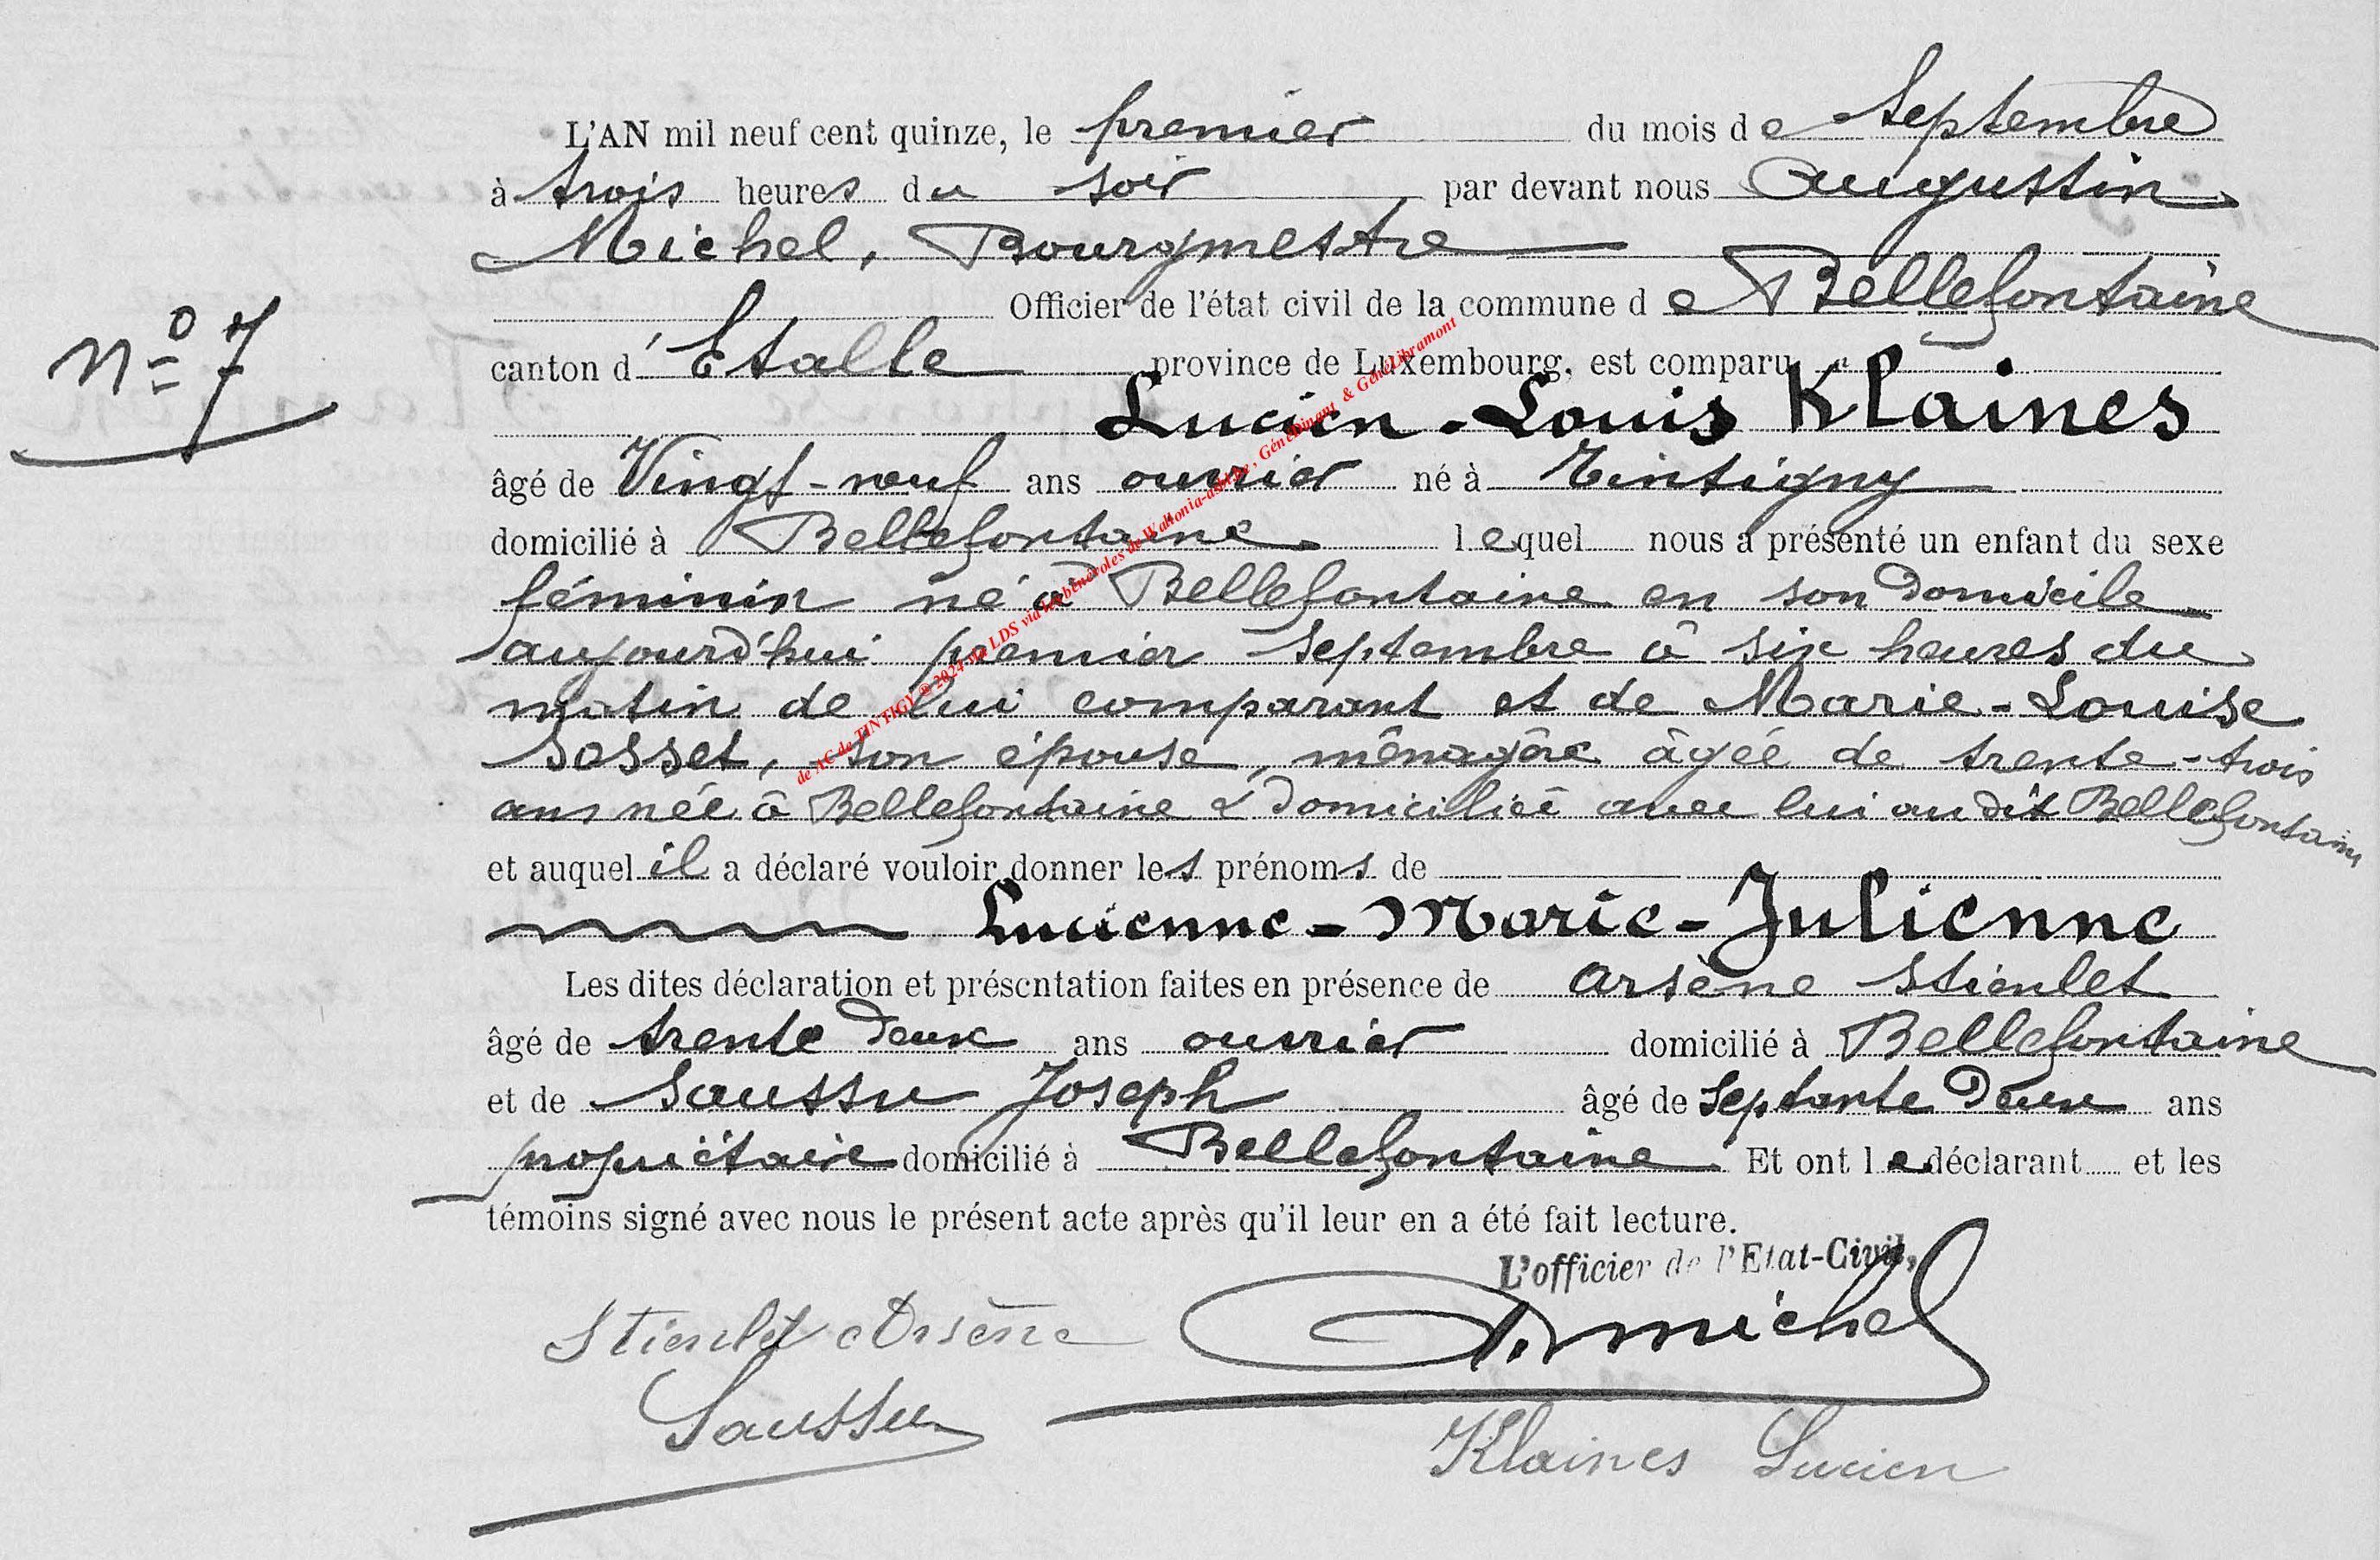 L'AN mil neuf cent quinze, le premier du mois de Septembre
à trois heures du soir par devant nous Augustin
Michel, Bourgmestre
Officier de l'état civil de la commune de Bellefontaine
N° 7
canton d'Etalle province de Luxembourg, est comparu
Lucien-Louis Klaines
âgé de Vingt-neuf ans ouvrier né à Tintigny
domicilié à Bellefontaine lequel nous a présenté un enfant du sexe
féminin né à Bellefontaine en son domicile
aujourd'hui premier septembre à six heures du
matin de lui comparant et de Marie-Louise
Sosset, son épouse, ménagère âgée de trente-trois
ans née à Bellefontaine & domiciliée avec lui au dit Bellefontaine
et auquel il a déclaré vouloir donner les prénoms de
Lucienne-Marie-Julienne
Les dites déclaration et présentation faites en présence de Arsène Stienlet
âgé de trente deux ans ouvrier domicilié à Bellefontaine
et de Saussu Joseph âgé de septante deux ans
propriétaire domicilié à Bellefontaine Et ont le déclarant et les
témoins signé avec nous le présent acte après qu'il leur en a été fait lecture.
L'officier de l'Etat-Civil,
Stienlet Arsène
A. Michel
Saussu
Klaines Lucien
de AC de TINTIGY © 2024 via LDS via les bénévoles de Wallonia-asbl.be, GénéDinant & GénéLibramont